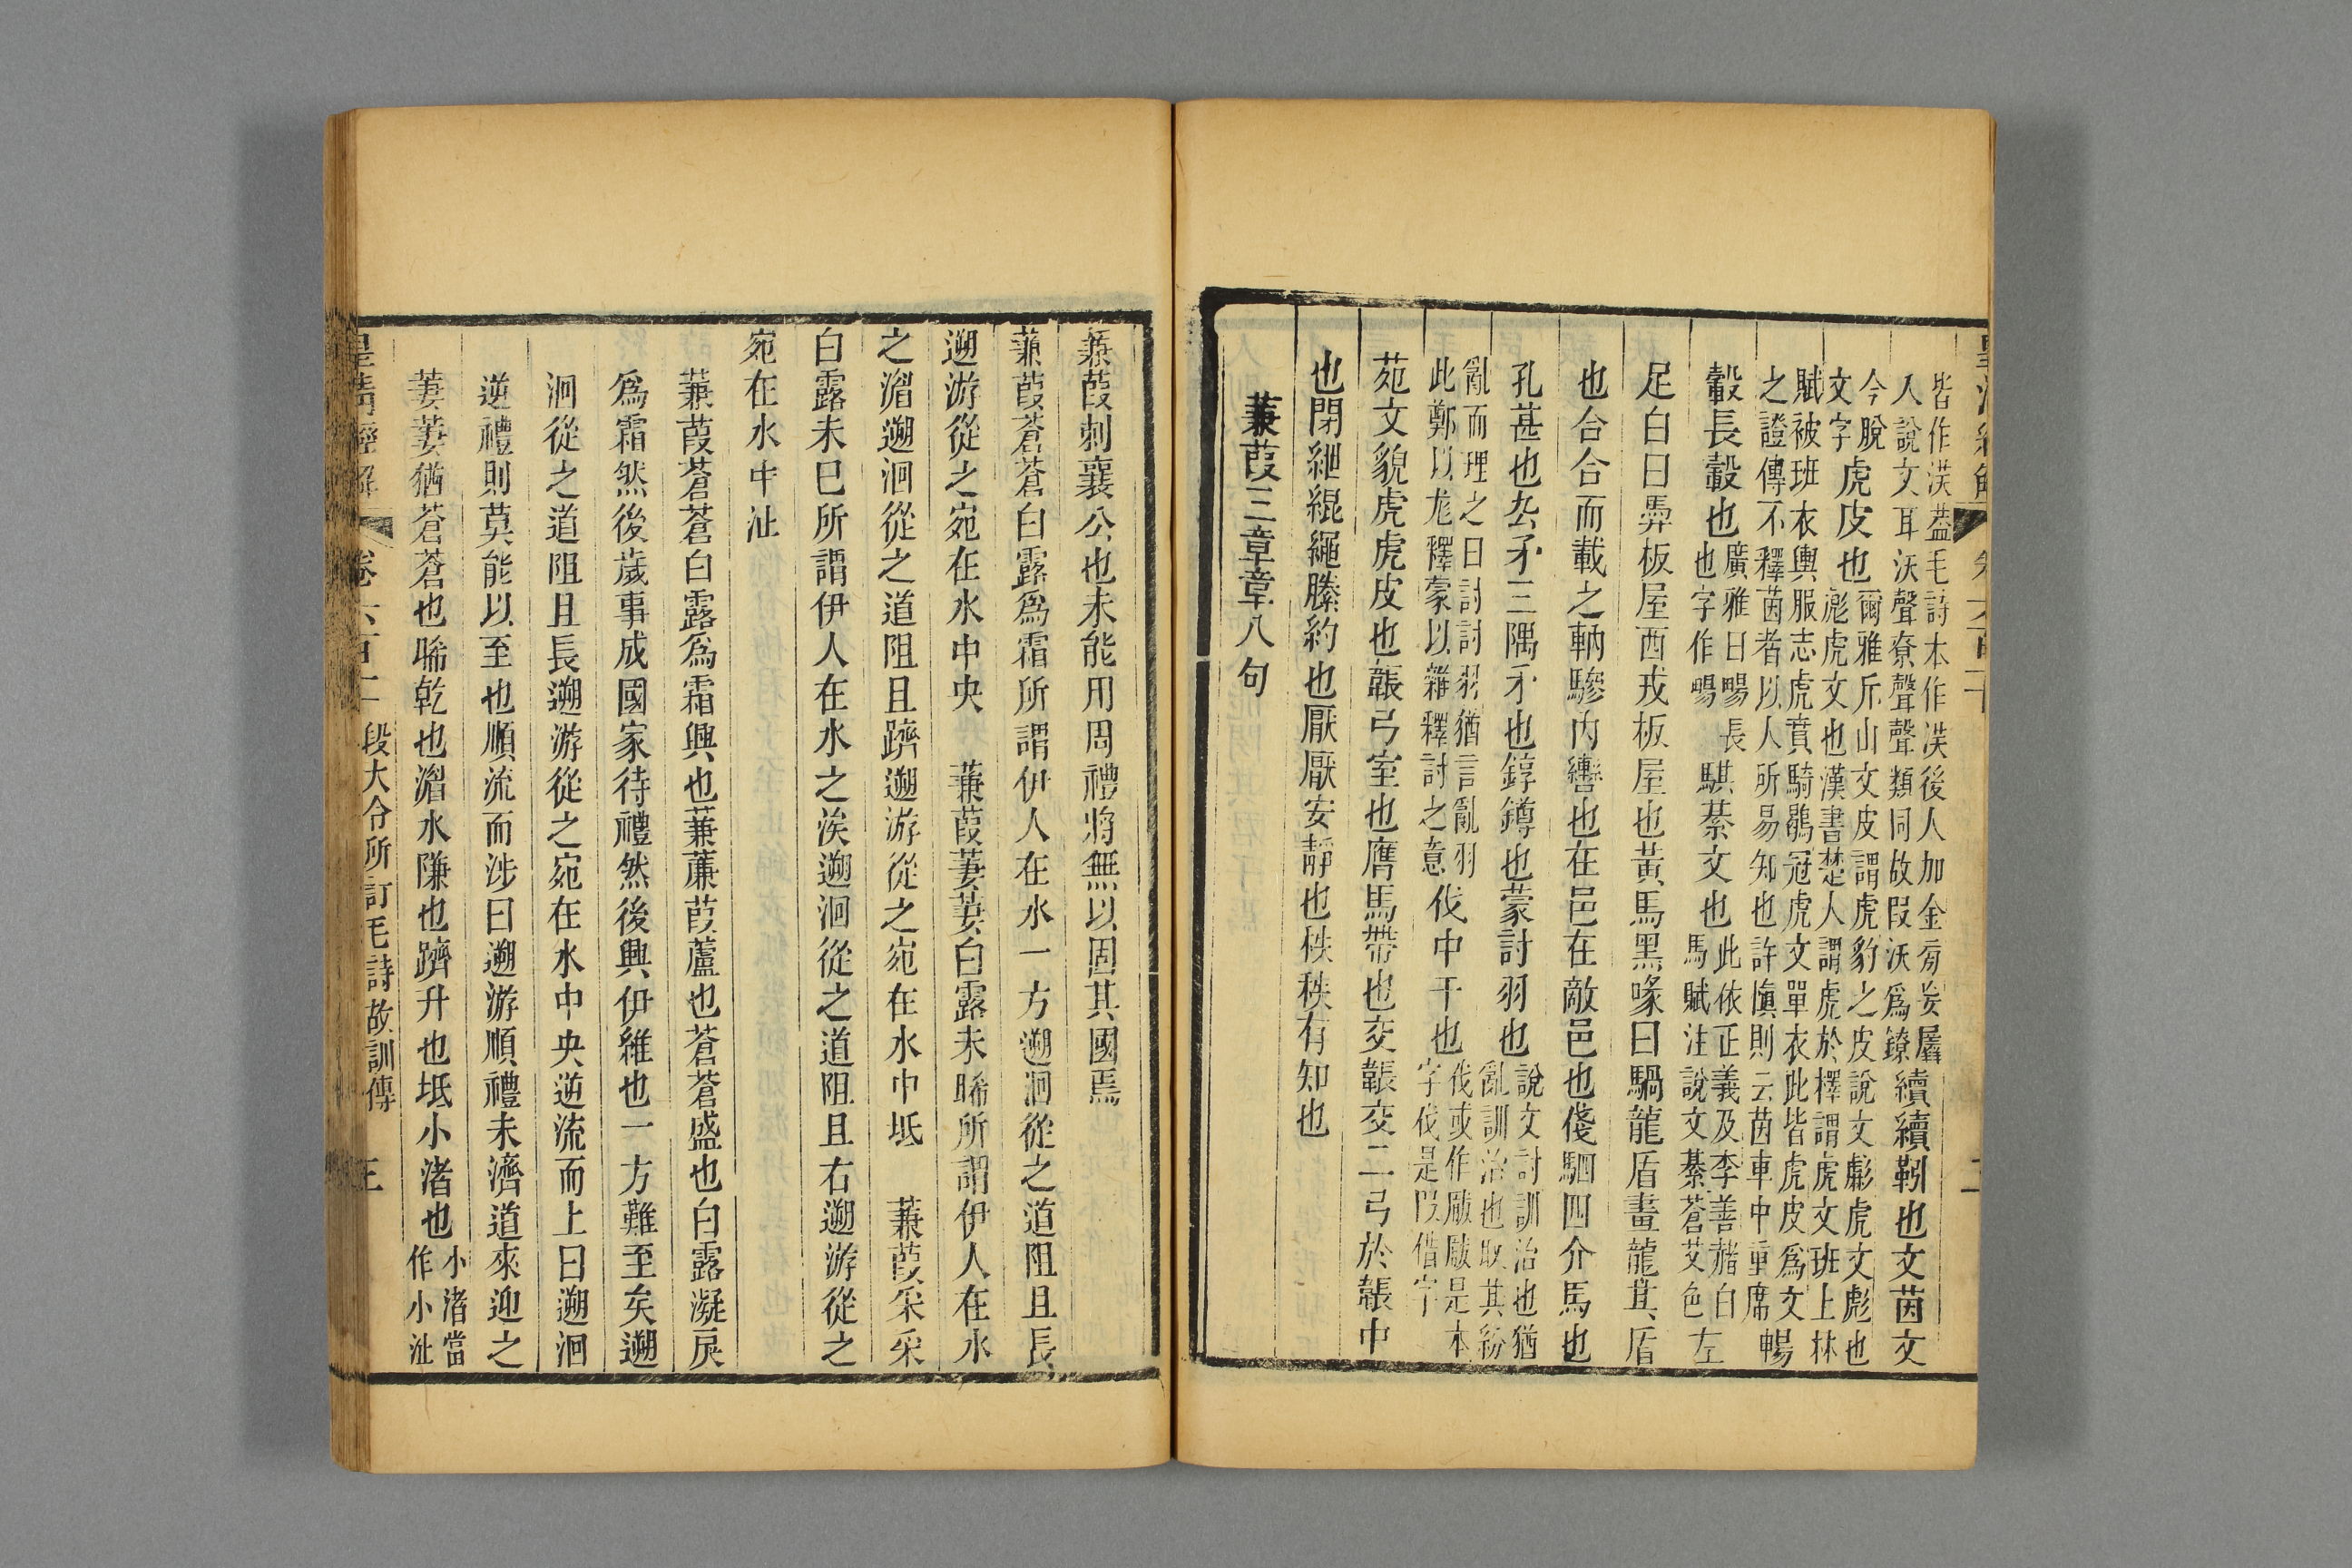 皆作沃葢毛詩本作沃後人加金旁妄羼
人說文耳沃聲尞聲聲類同故叚沃爲鐐
續續靷也文茵文
今脫
文字
虎皮也
爾雅斥山文皮謂虎豹之皮說文虨虎文彪也
彪虎文也漢書楚人謂虎於檡謂虎文班上林
賦被班衣輿服志虎賁騎鶡冠虎文單衣此皆虎皮爲文
之證傳不釋茵者以人所易知也許愼則云茵車中重席
暢
轂長轂也
廣雅曰暘長
也字作暘
騏綦文也
此依正義及李善赭白
馬賦注說文綦蒼艾色
左
足白曰馵板屋西戎板屋也黃馬黑喙曰騧龍盾畫龍其盾
也合合而載之軜驂內轡也在邑在敵邑也俴駟四介馬也
孔甚也厹矛三隅矛也錞鐏也蒙討羽也
說文討訓治也猶
亂訓治也取其紛
亂而理之曰討討羽猶言亂羽
此鄭以尨釋蒙以雜釋討之意
伐中干也
伐或作瞂瞂是本
字伐是叚借字
苑文貌虎虎皮也韔弓室也膺馬帶也交韔交二弓於韔中
也閉紲緄繩縢約也厭厭安靜也秩秩有知也
蒹葭三章章八句
蒹葭刺襄公也未能用周禮將無以固其國焉
蒹葭蒼蒼白露爲霜所謂伊人在水一方遡洄從之道阻且長
遡游從之宛在水中央 蒹葭萋萋白露未晞所謂伊人在水
之湄遡洄從之道阻且躋遡游從之宛在水中坻 蒹葭采采
白露未巳所謂伊人在水之涘遡洄從之道阻且右遡游從之
宛在水中沚
蒹葭蒼蒼白露爲霜興也蒹薕葭蘆也蒼蒼盛也白露凝戾
爲霜然後歲事成國家待禮然後興伊維也一方難至矣遡
洄從之道阻且長遡游從之宛在水中央逆流而上曰遡洄
逆禮則莫能以至也順流而涉曰遡游順禮未濟道來迎之
萋萋猶蒼蒼也晞乾也湄水隒也躋升也坻小渚也
小渚當
作小沚
皇清經解 卷六百二 段大令所訂毛詩故訓傳 三